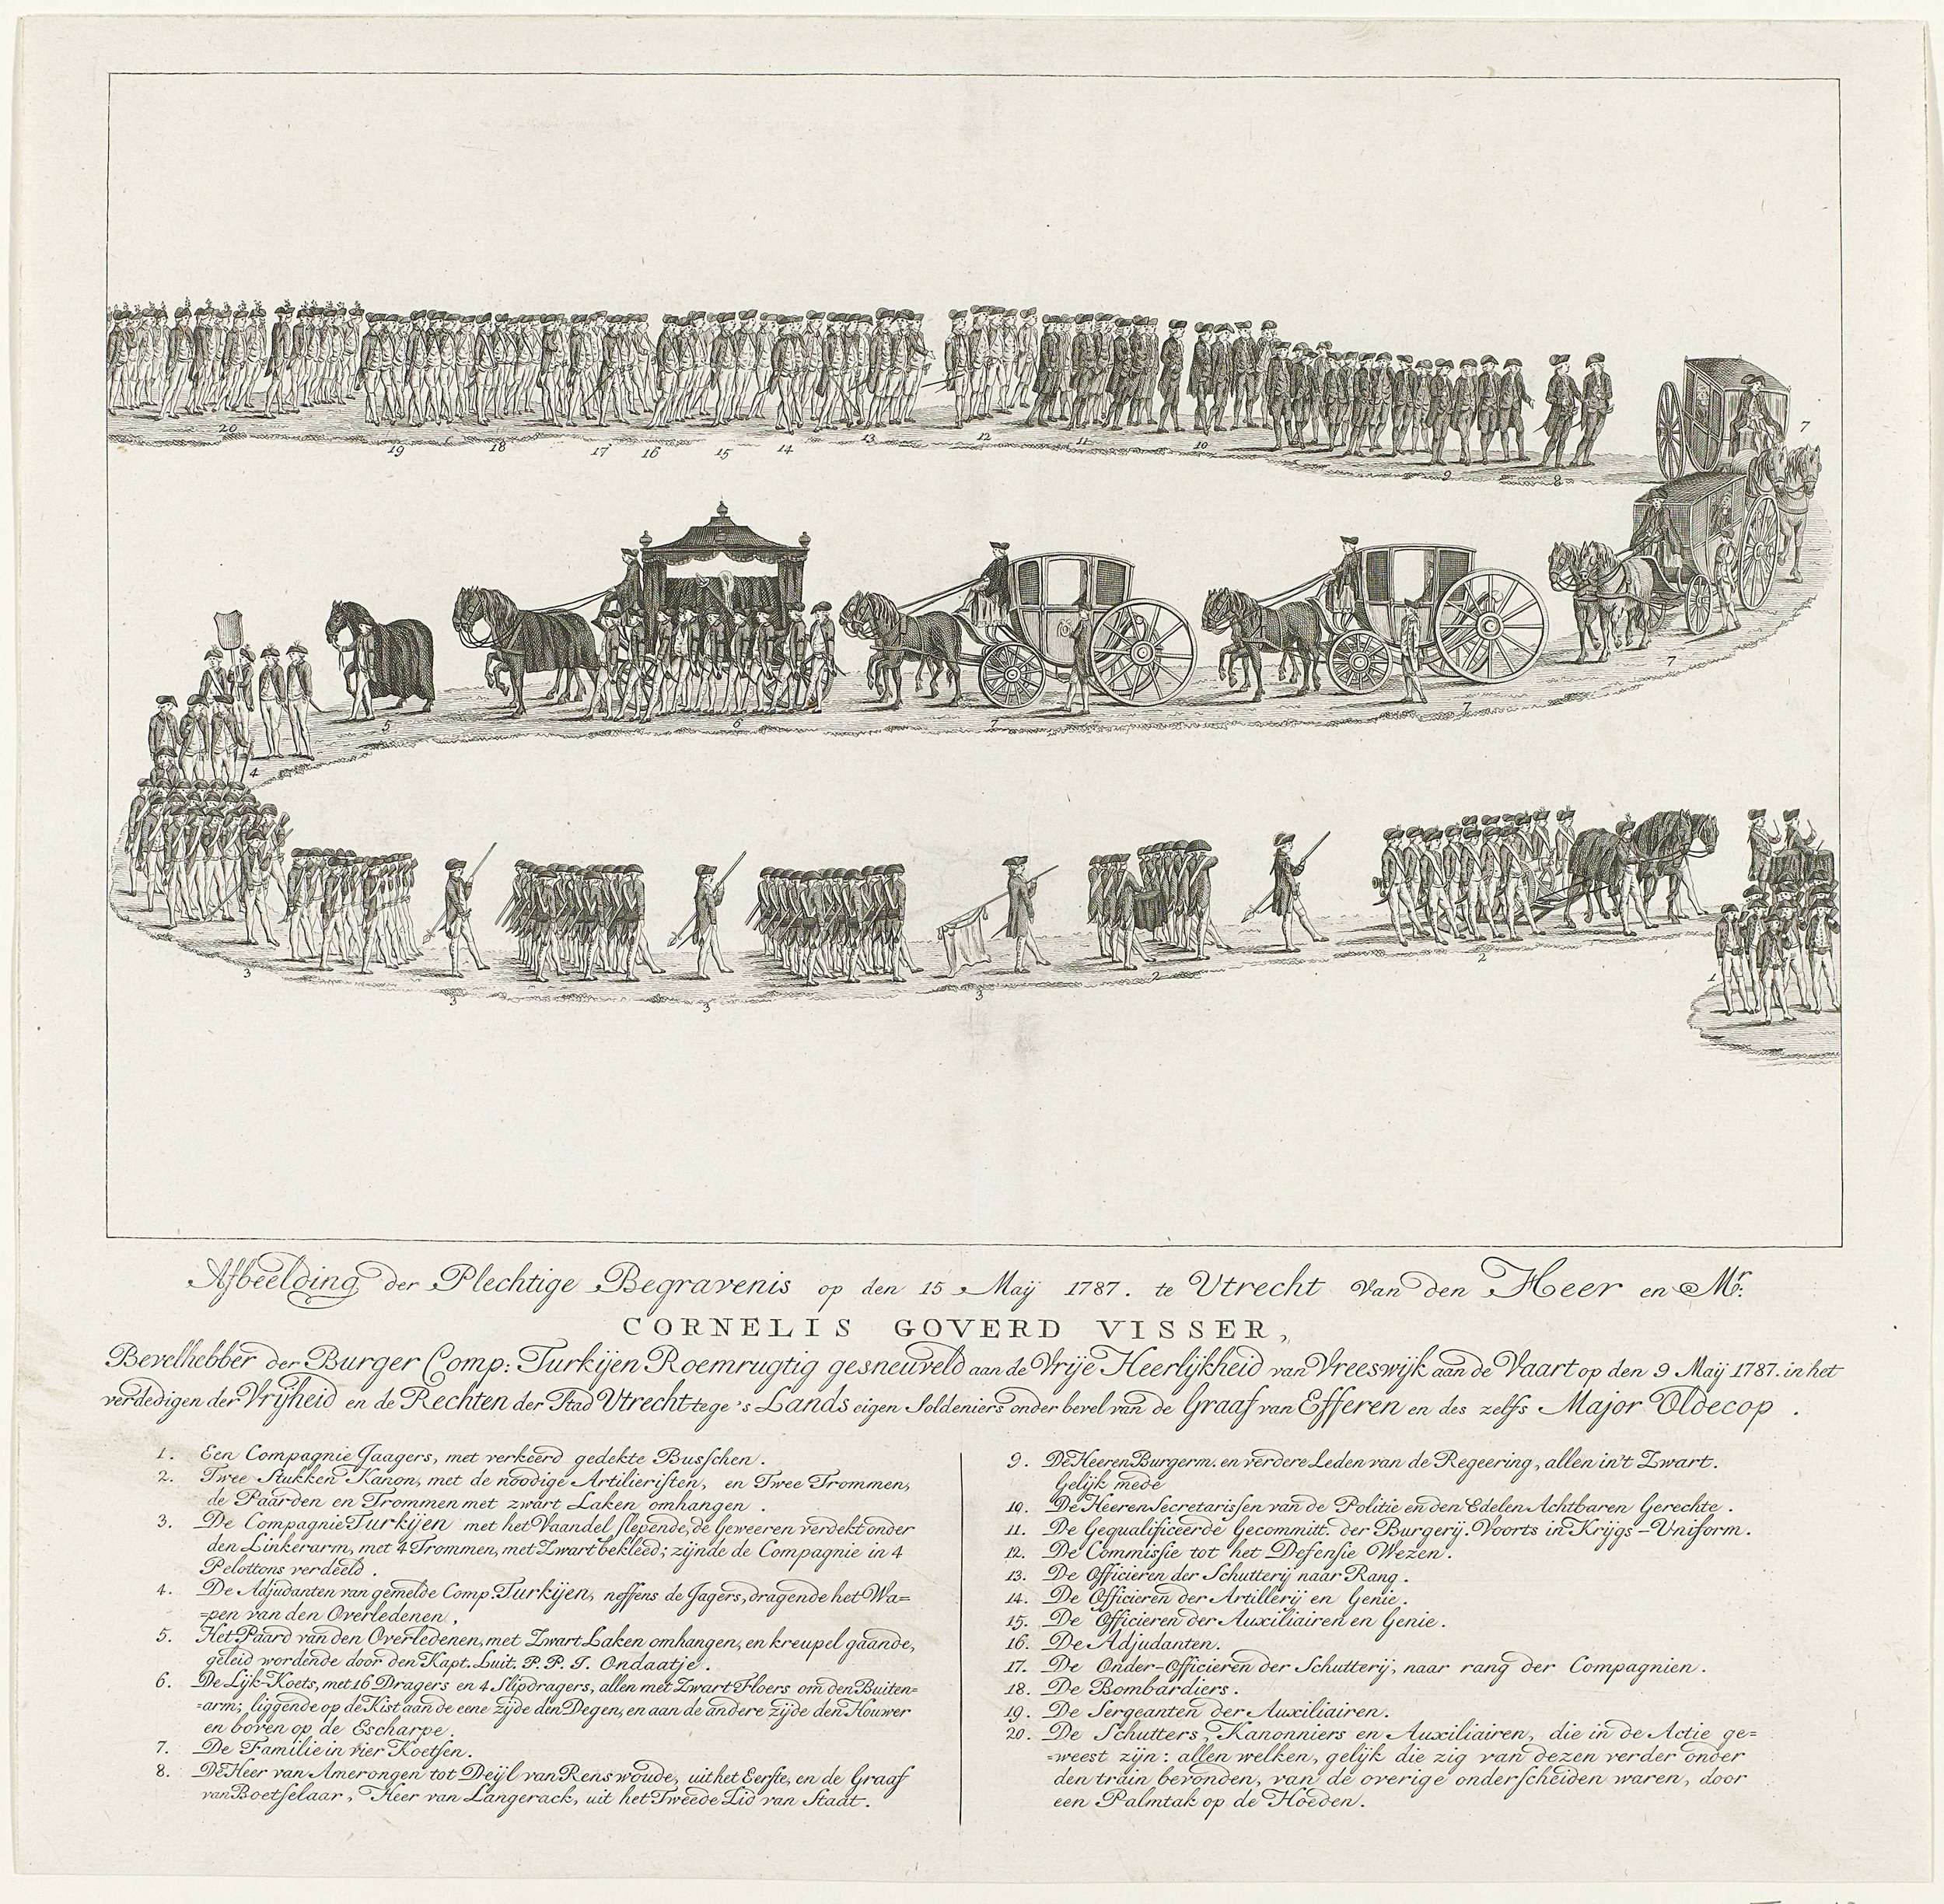 20
19
18
17
16
15
14
13
12
11
10
9
8
7
7
7
7
6
5
4
3
3
3
3
2
2
1
Afbeelding der Plechtige Begravenis op den 15 Maÿ 1787. te Utrecht van den Heer en Mr:
CORNELIS GOVERD VISSER,
Bevelhebber der Burger Comp: Turkÿen Roemrugtig gesneuveld aan de Vrÿe Heerlÿkheid van Vreeswÿk aan de Vaart op den 9 Maÿ 1787. in het
verdedigen der Vrÿheid en de Rechten der Stad Utrecht tege 's Lands eigen Soldeniers onder bevel van de Graaf van Efferen en des zelfs Major Oldecop.
1. Een Compagnie Jaagers, met verkeerd gedekte Busschen.
2. Twee Stukken Kanon, met de noodige Artilieristen, en Twee Trommen,
de Paarden en Trommen met zwart Laken omhangen.
3. De Compagnie Turkÿen met het Vaandel slepende, de Geweeren verdekt onder
den Linkerarm, met 4 Trommen, met Zwart bekleed; zijnde de Compagnie in 4
Pelottons verdeeld.
4. De Adjudanten van gemelde Comp. Turkÿen, neffens de Jagers, dragende het Wa=
=pen van den Overledenen.
5. Het Paard van den Overledenen, met Zwart Laken omhangen, en kreupel gaande,
geleid wordende door den Kapt. Luit. P. P. J. Ondaatje.
6. De Lÿk-Koets, met 16 Dragers en 4 Slipdragers, allen met Zwart Floers om den Buiten=
=arm; liggende op de Kist aan de eene zÿde den Degen, en aan de andere zÿde den Houwer
en boven op de Escharpe.
7. De Familie in vier Koetsen.
8. De Heer van Amerongen tot Deÿl van Renswoude, uit het Eerste, en de Graaf
van Boetselaar, Heer van Langerack, uit het Tweede Lid van Staat.
9. De Heeren Burgerm. en verdere Leden van de Regeering, allen in't Zwart.
Gelÿk mede
10. De Heeren Secretarissen van de Politie en den Edelen Achtbaren Gerechte.
11. De Gequalificeerde Gecommitt. der Burgerÿ. Voorts in Krÿgs-Uniform.
12. De Commissie tot het Defensie Wezen.
13. De Officieren der Schutterÿ naar Rang.
14. De Officieren der Artillerÿ en Genie.
15. De Officieren der Auxiliairen en Genie.
16. De Adjudanten.
17. De Onder-Officieren der Schutterÿ, naar rang der Compagnien.
18. De Bombardiers.
19. De Sergeanten der Auxiliairen.
20. De Schutters, Kanonniers en Auxiliairen, die in de Actie ge=
=weest zÿn: allen welken, gelÿk die zig van dezen verder onder
den train bevonden, van de overige onderscheiden waren, door
een Palmtak op de Hoeden.